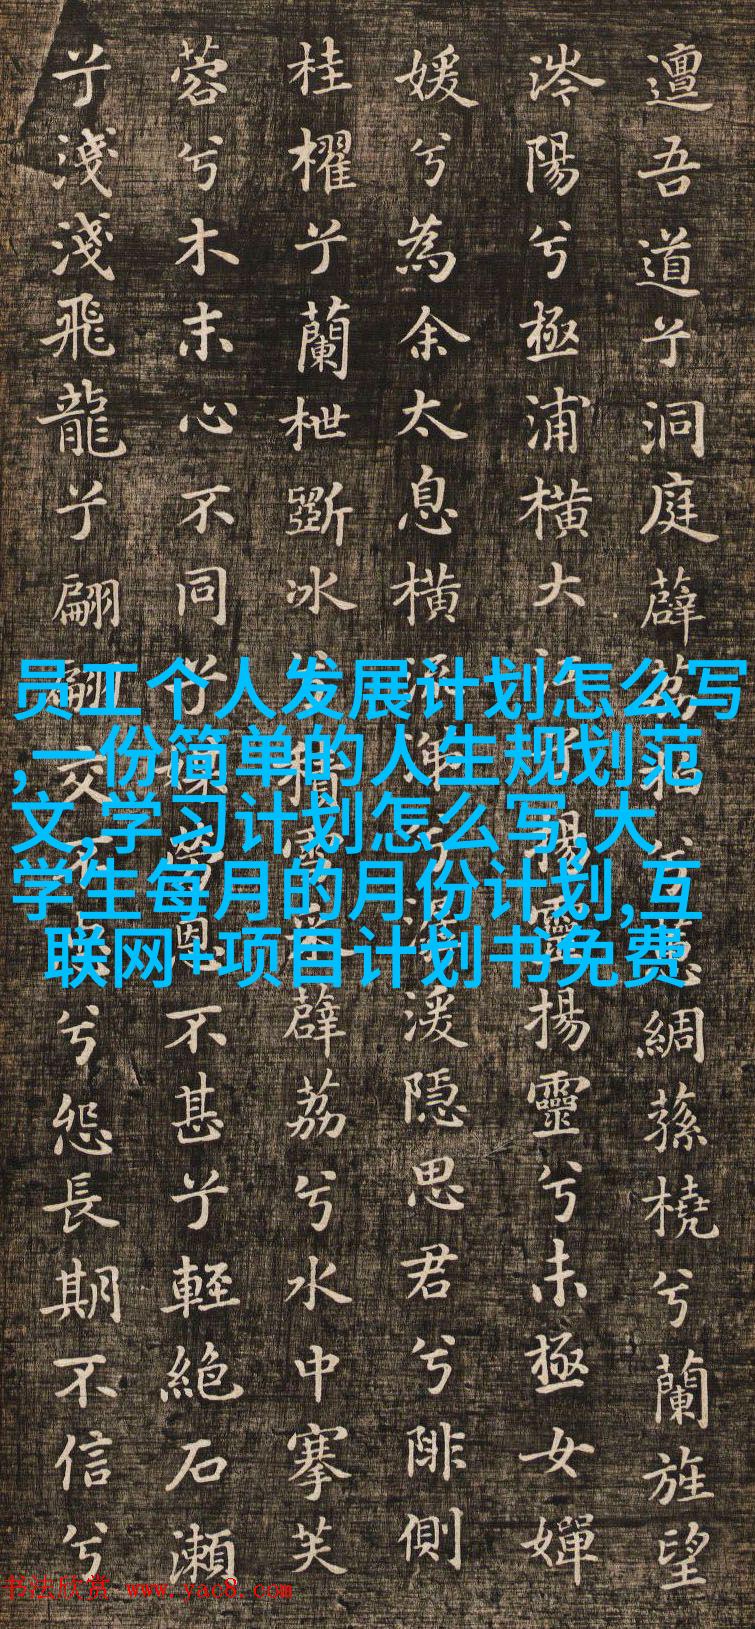 邅吾道兮洞庭薜荔拍兮蕙綢蓀橈兮蘭旌望
涔陽兮極浦橫大江兮揚靈揚靈兮未極女嬋
媛兮為余太息橫流涕兮潺湲隱思君兮陫側
桂櫂兮蘭枻斲冰兮積雪采薜荔兮水中搴芙
蓉兮木末心不同兮媒勞恩不甚兮輕絕石瀨
兮淺淺飛龍兮翩翩交不忠兮怨長期不信兮
员工个人发展计划怎么写
,一份简单的人生规划范
文,学习计划怎么写,大
学生每月的月份计划,互
联网+项目计划书免费
书法欣赏 www.yac8.com